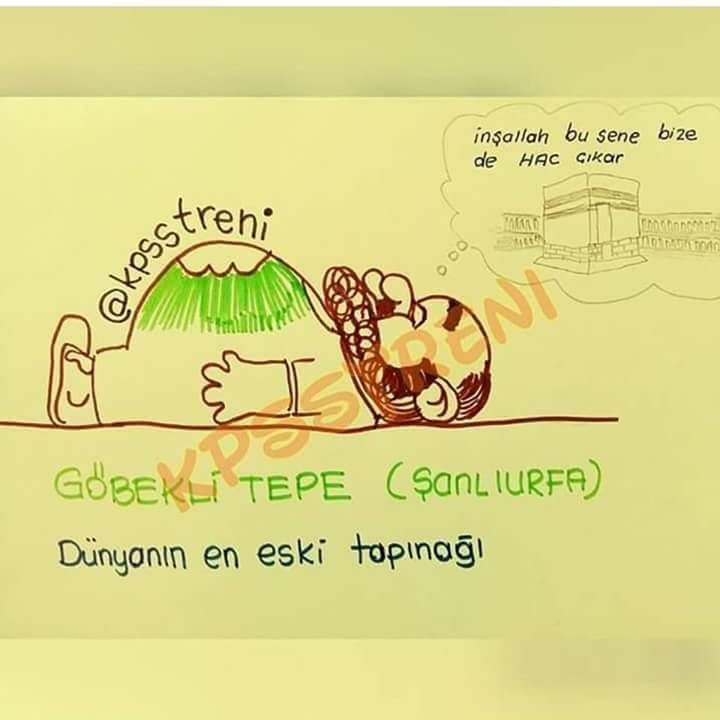 inşallah bu sene bize
de HAC çıkar
@kpsstreni
KPSSTRENİ
GÖBEKLİ TEPE (ŞANLIURFA)
Dünyanın en eski tapınağı